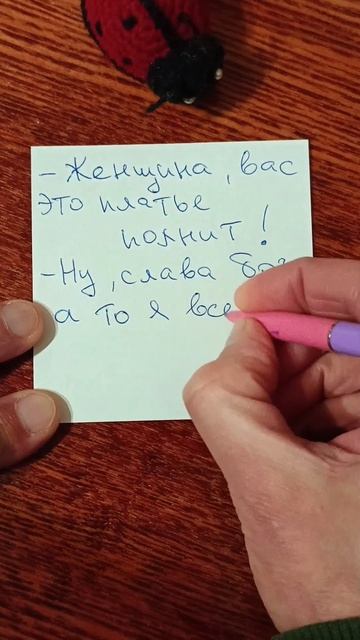 - Женщина, вас
это платье
полнит!
- Ну, слава
а то я все